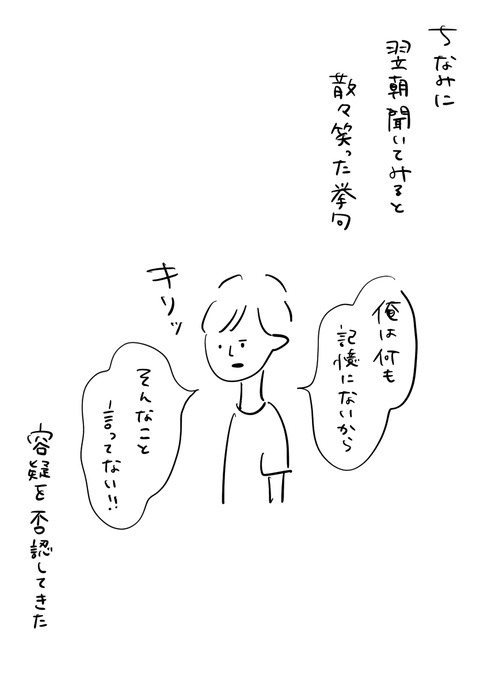 ちなみに
翌朝聞いてみると
散々笑った挙句
俺は何も
記憶にないから
キリッ
そんなこと
言ってない!!
容疑を否認してきた